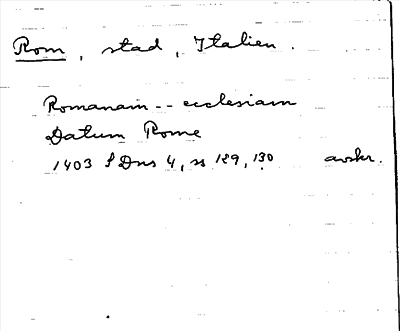 Rom, stad, Italien.
Romanam -- ecclesiam
Datum Rome
1403 SDns 4, ss 129, 130 avskr.